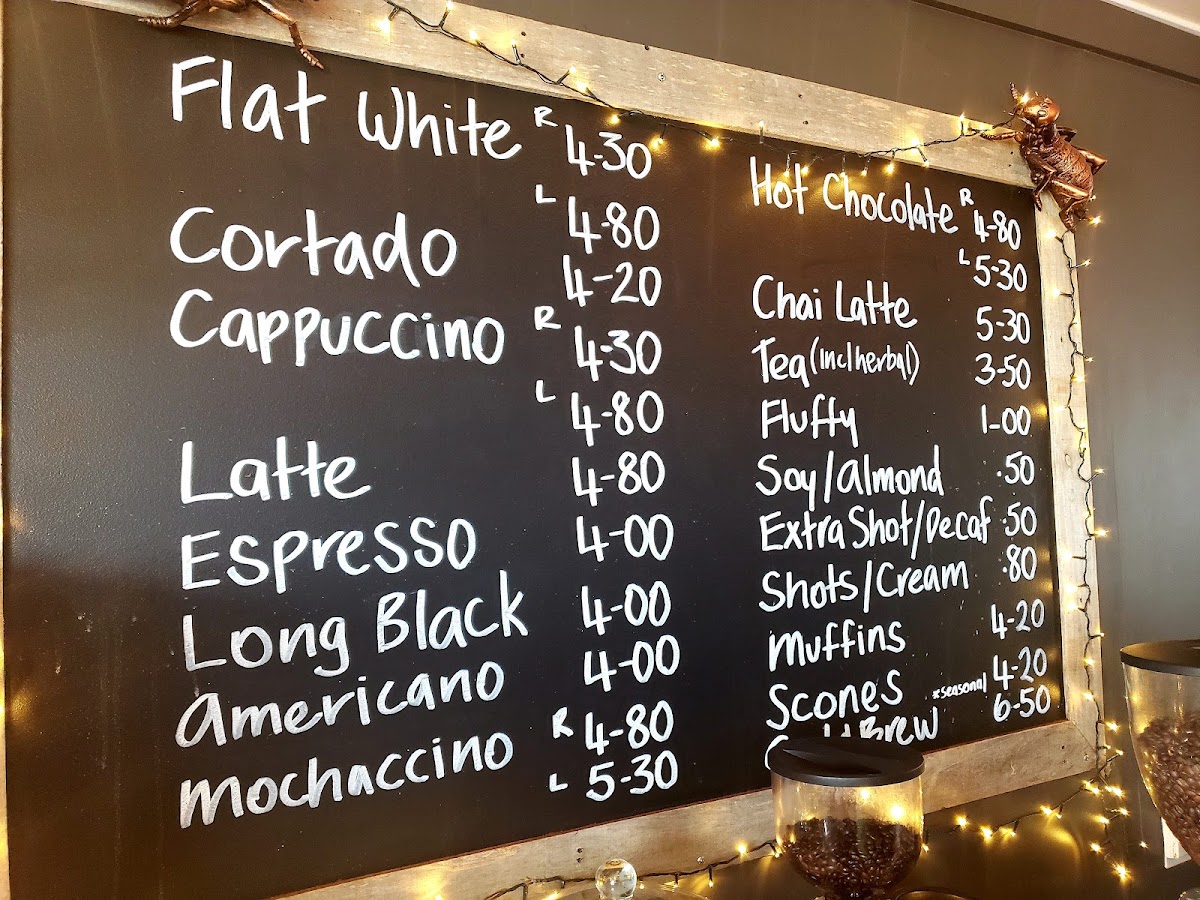 Flat White R 4-30
L 4-80
Cortado 4-20
Cappuccino R 4-30
L 4-80
Latte 4-80
Espresso 4-00
Long Black 4-00
americano 4-00
mochaccino R 4-80
L 5-30
Hot Chocolate R 4-80
L 5-30
Chai Latte 5-30
Tea (incl herbal) 3-50
Fluffy 1-00
Soy/almond .50
Extra Shot/Decaf .50
Shots/Cream .80
muffins 4-20
Scones 4-20
Brew *seasonal 6-50